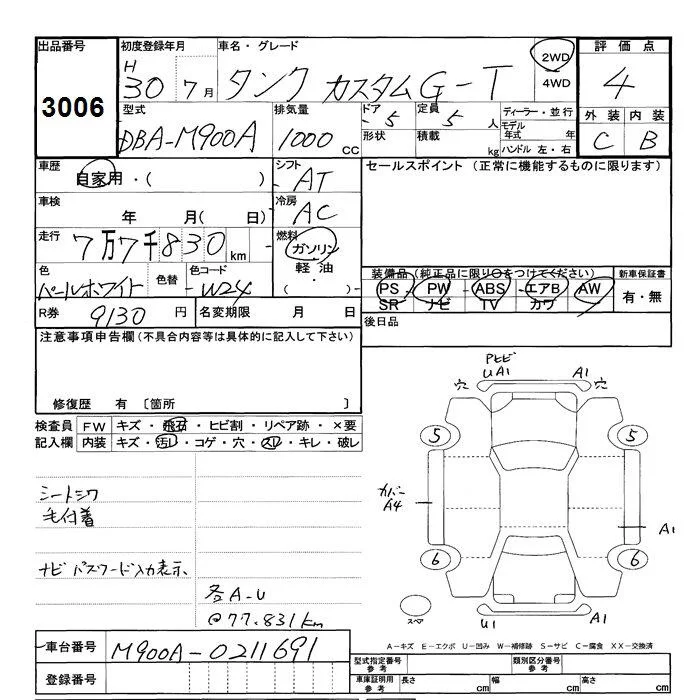 出品番号 初度登録年月 車名・グレード 評価点
3006 H 30 7月 タンク カスタムG-T 2WD 4WD 4
型式 排気量 ドア 定員 ディーラー・並行 外装 内装
DBA-M900A 1000 CC -5 形状 5 人 積載 kg モデル年式 年 ハンドル 左・右 C B
車歴 自家用・( ) シフト AT セールスポイント (正常に機能するものに限ります)
車検 年 月( 日) 冷房 AC
走行 7万7千830km 燃料 ガソリン 軽油 ・( )
色 パールホワイト 色替 色コード -W24 装備品(純正品に限り○をつけてください) 新車保証書
PS・PW・ABS・エアB・AW 有・無
SR ナビ TV カワ
R券 9130 円 名変期限 月 日 後日品
注意事項申告欄(不具合内容等は具体的に記入して下さい)
修復歴 有 〔箇所 〕
検査員 FW キズ・飛石・ヒビ割・リペア跡・×要
記入欄 内装 キズ・汚レ・コゲ・穴・スレ・キレ・破レ
シートシワ
毛付着
ナビ パスワード入力表示、
各A-U
@77.831km
U A1 A1
穴 穴
5 5
カバー
A4
A1
6 6
スペア U1 A1
A-キズ E-エクボ U-凹み W-補修跡 S-サビ C-腐食 XX-交換済
車台番号 M900A-0211691
登録番号
型式指定番号 参考 類別区分番号 参考
車庫証明用 参考 長さ cm 幅 cm 高さ cm